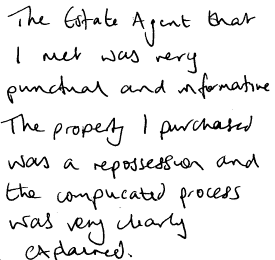 The Estate Agent that
I met was very
punctual and informative
The property I purchased
was a repossession and
the complicated process
was very clearly
explained.